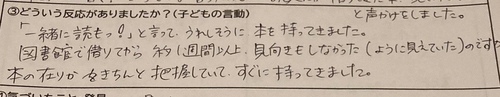 ③どういう反応がありましたか？(子どもの言動)
と声かけをしました。
「一緒に読もっ？」と言って、うれしそうに本を持ってきました。
図書館で借りてから約1週間以上、見向きもしなかった(ように見えていた)のですが
本の在りかをきちんと把握していて、すぐに持ってきました。